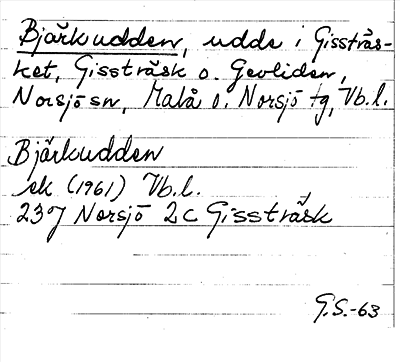 Bjärkudden, udde i Gissträs-
ket, Gissträsk o. Gevliden,
Norsjö sn, Malå o. Norsjö tg, Vb.l.
Bjärkudden
ek (1961) Vb.l.
23J Norsjö 2c Gissträsk
G.S.-63